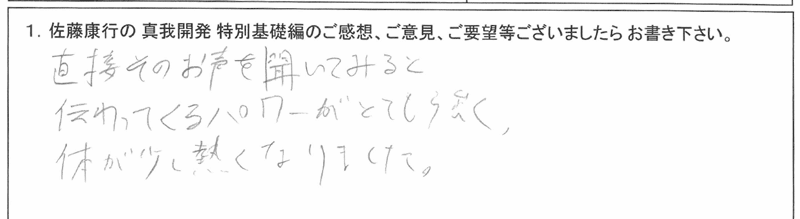 1. 佐藤康行の 真我開発 特別基礎編のご感想、ご意見、ご要望等ございましたら お書き下さい。
直接そのお声を聞いてみると
伝わってくるパワーがとても強く、
体が少し熱くなりました。